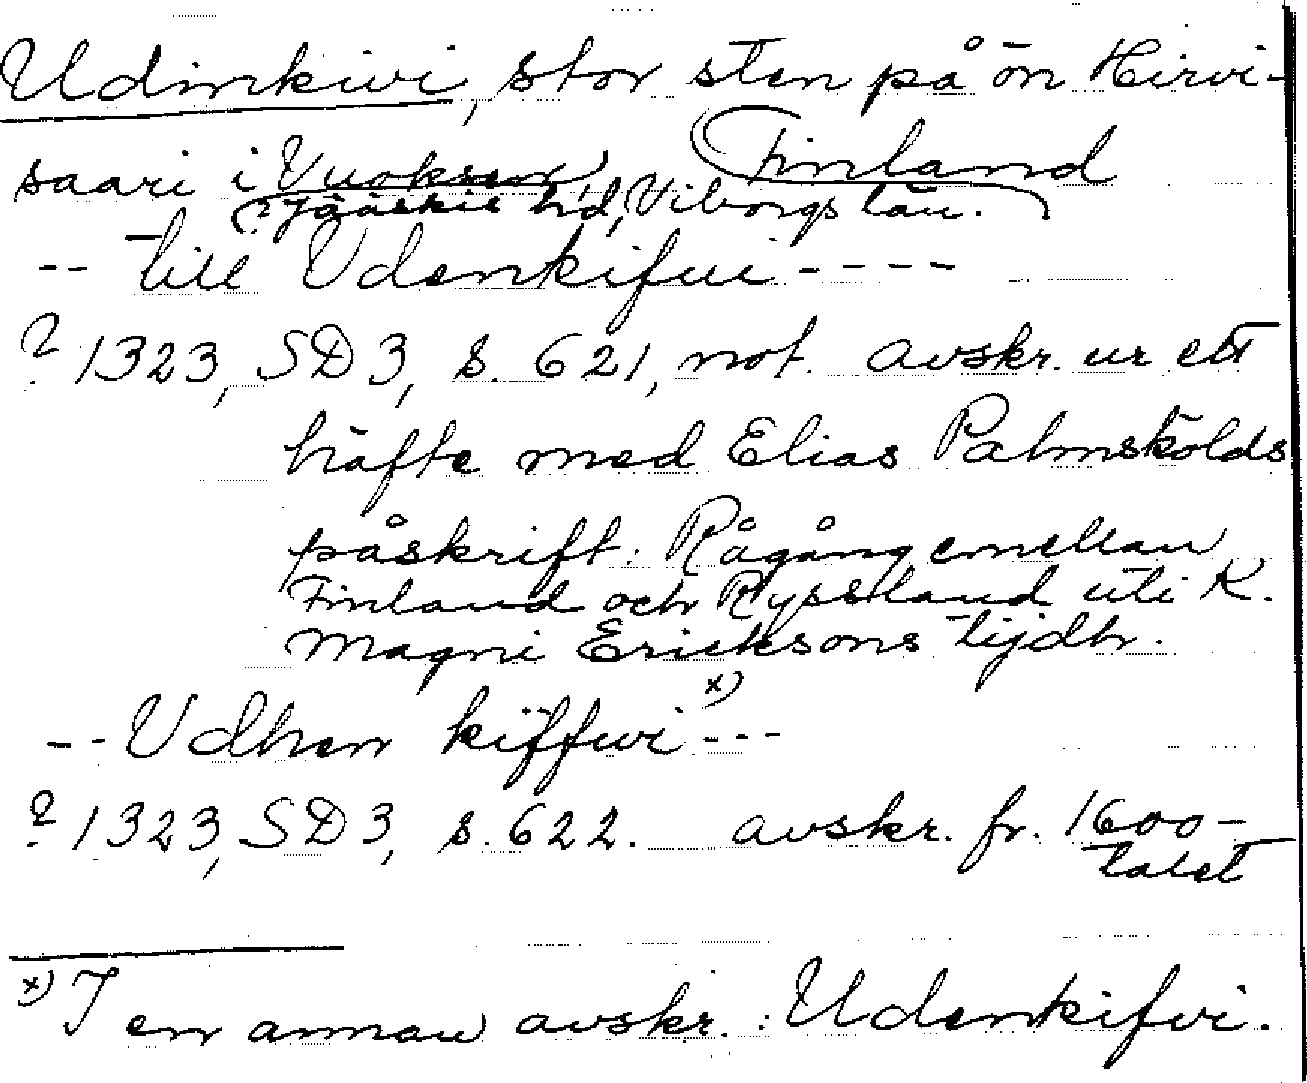 Udinkivi, stor sten på ön Hirvi-
saari i Vuoksen, Finland
(? Jääskis hd, Viborgs län.)
-- till Udenkifui ----
? 1323, SD 3, s. 621, not. avskr. ur ett
häfte med Elias Palmskölds
påskrift: Rågång emellan
Finland och Ryssland uti K.
Magni Ericksons tijdh.
-- Udhen kiffwi x) ---
? 1323, SD 3, s. 622. avskr. fr. 1600-
talet
x) I en annan avskr.: Udenkifvi.